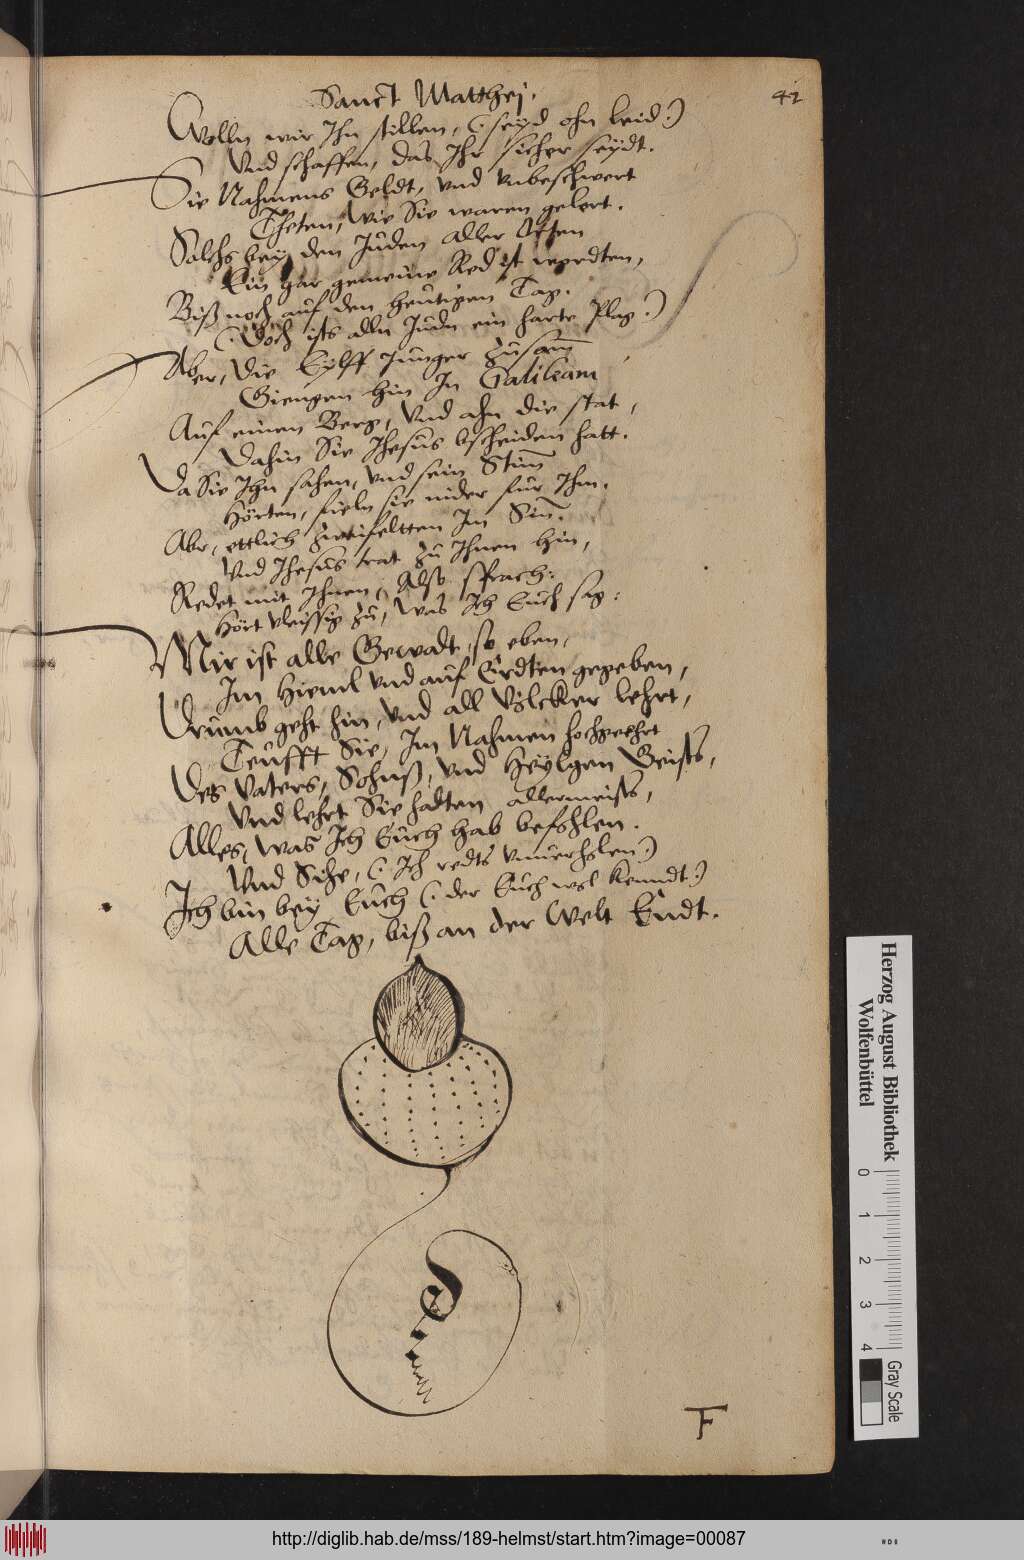 Sanct Matthej.
41
Wolln wir Ihn stillen, (: seÿd ohn leid :)
Vnd schaffen, das Ihr sicher seÿdt.
Sie Nahmens Geldt, vnd vnbeschwert
Theten, wie Sie waren gelert.
Solchs beÿ den Juden aller Orten
Ein gar gemeine Red ist wordten,
Biß noch auf den heutigen Tag.
(: Doch ists alln Judn ein harte Plag :)
Aber, die Eylff Junger zusam̄
Giengen hin In Galileam
Auf einen Berg, Vnd ahn die stat,
Dahin Sie Jhesus bscheiden hatt.
Da Sie Ihn sahen, vnd sein Stim̄
Hörten, fieln sie nider fur Ihm.
Abr, ettlich zweifeltten Im Sin̄.
Vnd Jhesus trat zu Ihnen hin,
Redet mit Ihnen, Also sprach:
Hört vleissig zu, was Ich Euch sag:
Mir ist alle Gewadt, so eben,
Im Hieml vnd auf Erdten gegeben,
Drumb geht hin, vnd all Völcker lehrt,
Teufft Sie, Im Nahmen hochgeehrt
Des Vaters, Sohnß, vnd Heÿlgen Geists,
Vnd lehrt Sie hadten allermeists,
Alles, was Ich Euch hab befohlen.
Vnd Sihe, (: Ich redts vnuerholen :)
Ich bin beÿ Euch (: der Euch wol kenndt :)
Alle Tag, biß an der Welt Endt.
F
Herzog August Bibliothek
Wolfenbüttel
0 1 2 3 4
Gray Scale
http://diglib.hab.de/mss/189-helmst/start.htm?image=00087